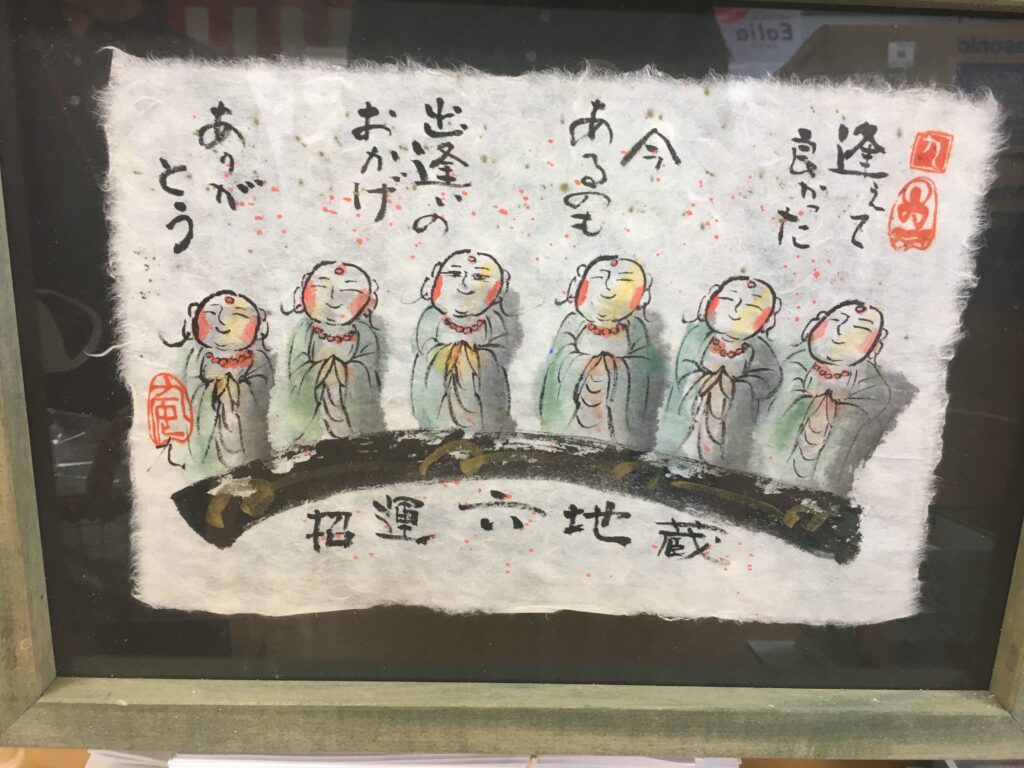 逢えて
良かった
今
あるのも
出逢いの
おかげ
ありが
とう
招運六地蔵
Eolia